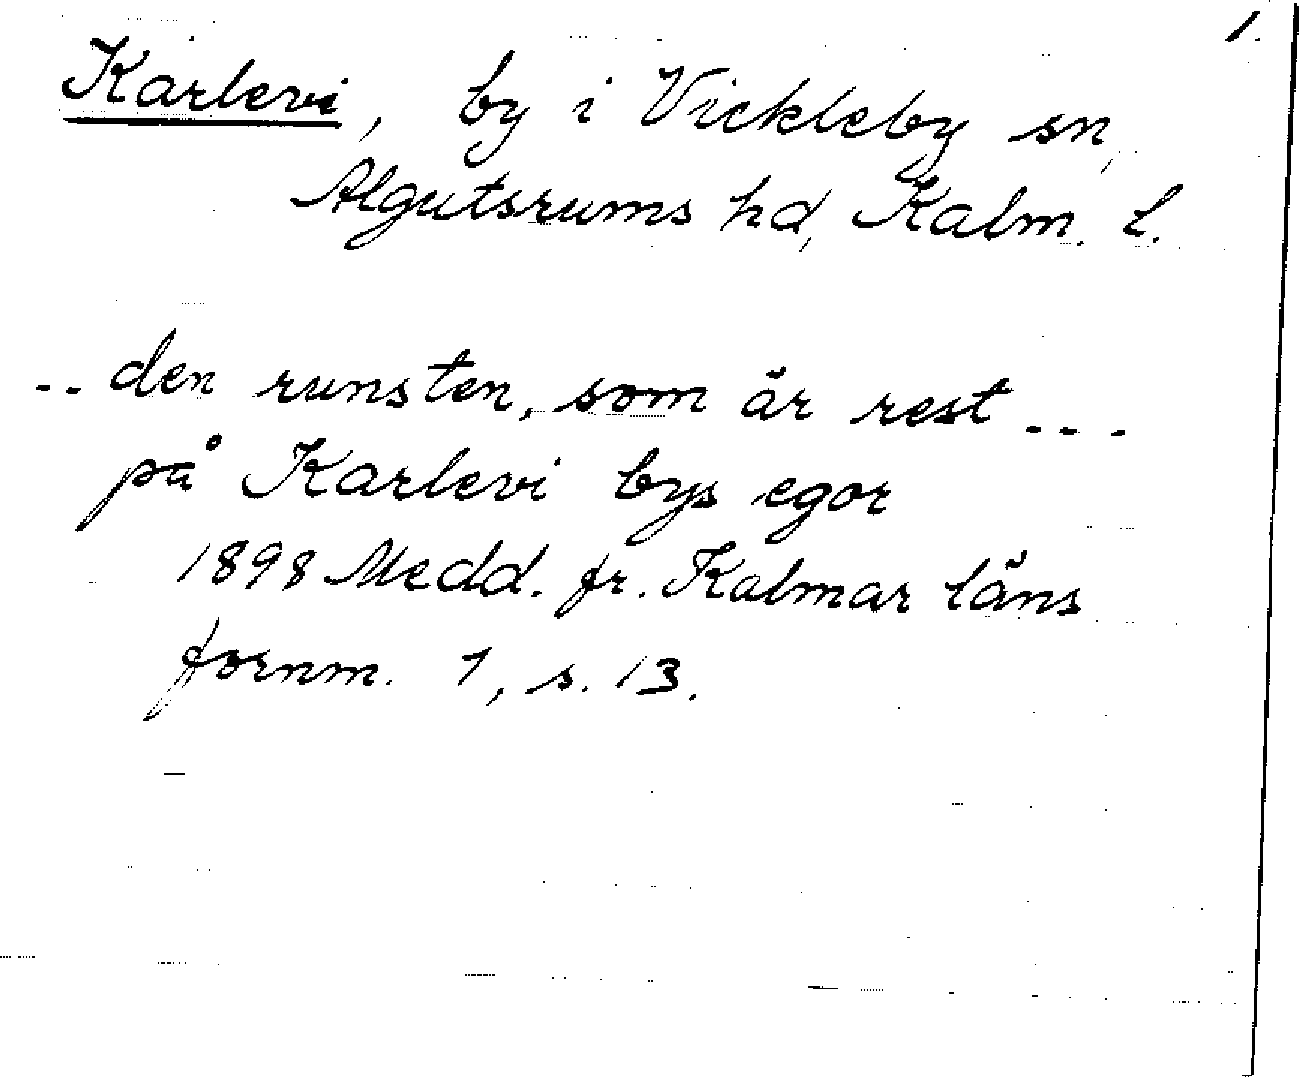 1.
Karlevi, by i Vickleby sn,
Algutsrums hd, Kalm. l.
.. den runsten, som är rest ...
på Karlevi bys egor
1898 Medd. fr. Kalmar läns
fornm. 1, s. 13.